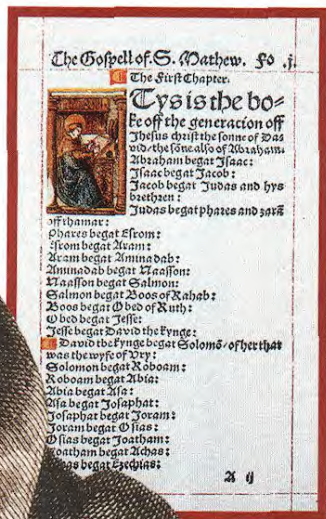 The Gospell of. S. Mathew. Fo .j.
The First Chapter.
Thys is the bo-
ke off the generacion off
Jhesus christ the sonne of Da
vid / the sone also of Abraham.
Abraham begat Jsaac:
Jsaac begat Jacob:
Jacob begat Judas and hys
brethren:
Judas begat phares and zarā
off thamar:
phares begat Esrom:
Esrom begat Aram:
Aram begat Aminadab:
Aminadab begat Naasson:
Naasson begat Salmon:
Salmon begat Boos of Rahab:
Boos begat Obed of Ruth:
Obed begat Jesse:
Jesse begat David the kynge:
David the kynge begat Solomō / of her that
was the wyfe of Vry:
Solomon begat Roboam:
Roboam begat Abia:
Abia begat Asa:
Asa begat Josaphat:
Josaphat begat Joram:
Joram begat Osias:
Osias begat Joatham:
Joatham begat Achas:
begat Ezechias:
A ij